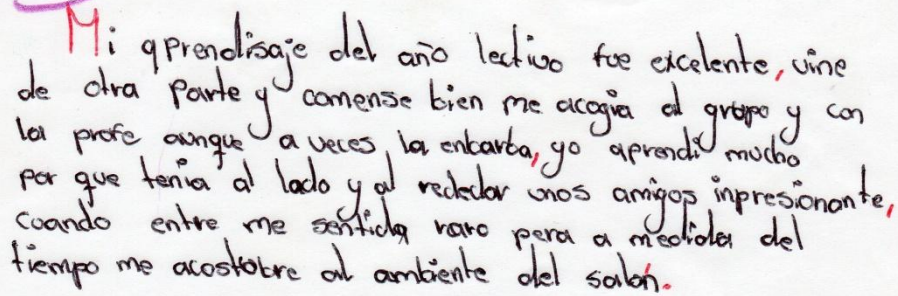 Mi aprendisaje del año lectivo fue excelente, vine
de otra parte y comense bien me acogia al grupo y con
la profe aunque a veces la enbarba, yo aprendi mucho
por que tenia al lado y al rededor unos amigos inpresionante,
cuando entre me sentida raro pera a medida del
tiempo me acostobre al ambiente del salón.